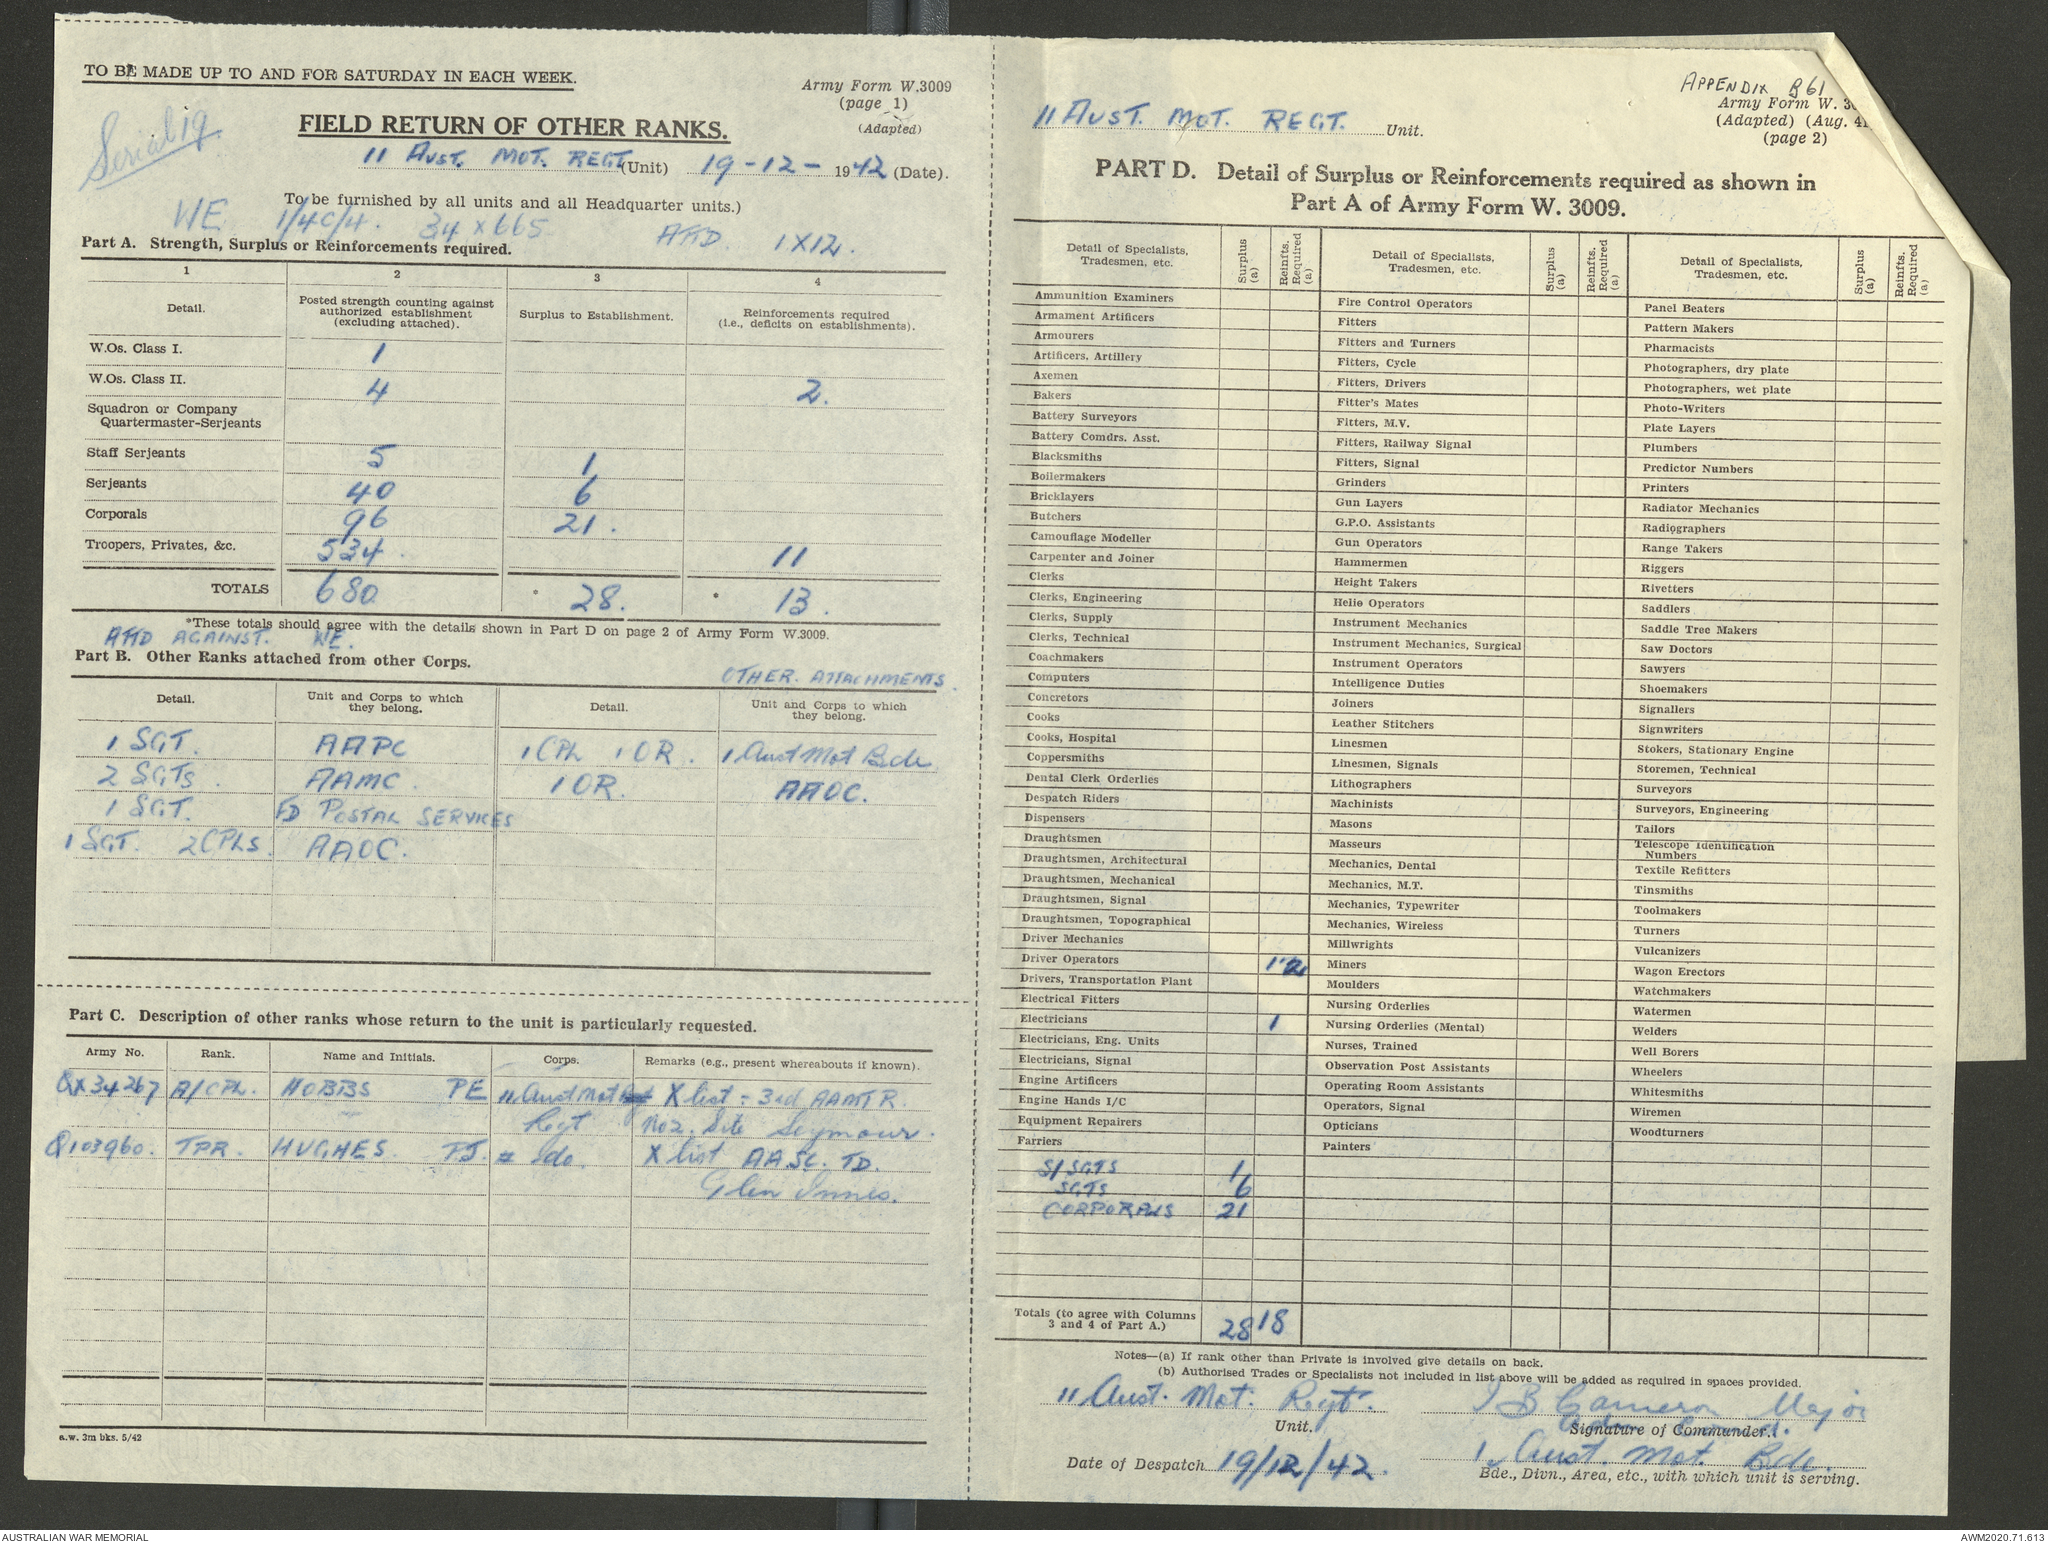 TO BE MADE UP TO AND FOR SATURDAY IN EACH WEEK.
Army Form W.3009
(page 1)
(Adapted)
Serial 19
FIELD RETURN OF OTHER RANKS.
11 AUST. MOT. REGT. (Unit) 19-12-1942 (Date).
To be furnished by all units and all Headquarter units.)
WE 1/4C/4. 34 x 665 ATTD. 1 X 12.
Part A. Strength, Surplus or Reinforcements required.
1 2 3 4
Detail. Posted strength counting against authorized establishment (excluding attached). Surplus to Establishment. Reinforcements required (i.e., deficits on establishments).
W.Os. Class I. 1
W.Os. Class II. 4 2.
Squadron or Company
Quartermaster-Serjeants
Staff Serjeants 5 1
Serjeants 40 6
Corporals 96 21.
Troopers, Privates, &c. 534. 11
TOTALS 680 * 28. * 13.
*These totals should agree with the details shown in Part D on page 2 of Army Form W.3009.
ATTD AGAINST. WE.
Part B. Other Ranks attached from other Corps.
OTHER ATTACHMENTS.
Detail. Unit and Corps to which they belong. Detail. Unit and Corps to which they belong.
1 SGT. AAPC 1 CPL 1 OR. 1 Aust Mot Bde
2 SGTS. AAMC. 1 OR. AAOC.
1 SGT. FD POSTAL SERVICES
1 SGT. 2 CPLS. AAOC.
Part C. Description of other ranks whose return to the unit is particularly requested.
Army No. Rank. Name and Initials. Corps. Remarks (e.g., present whereabouts if known).
QX34267 A/CPL. HOBBS PE 11 Aust Mot X list = 3rd AAMTR.
Regt No 2. Site Seymour.
Q103960. TPR. HUGHES. do. X list AASC. TD.
Glen Innes.
a.w. 3m bks. 5/42
APPENDIX B61
Army Form W. 30
(Adapted) (Aug. 41
(page 2)
11 AUST. MOT. REGT. Unit.
PART D. Detail of Surplus or Reinforcements required as shown in
Part A of Army Form W. 3009.
Detail of Specialists, Tradesmen, etc. Surplus (a) Reinfts. Required (a) Detail of Specialists, Tradesmen, etc. Surplus (a) Reinfts. Required (a) Detail of Specialists, Tradesmen, etc. Surplus (a) Reinfts. Required (a)
Ammunition Examiners Fire Control Operators Panel Beaters
Armament Artificers Fitters Pattern Makers
Armourers Fitters and Turners Pharmacists
Artificers, Artillery Fitters, Cycle Photographers, dry plate
Axemen Fitters, Drivers Photographers, wet plate
Bakers Fitter's Mates Photo-Writers
Battery Surveyors Fitters, M.V. Plate Layers
Battery Comdrs. Asst. Fitters, Railway Signal Plumbers
Blacksmiths Fitters, Signal Predictor Numbers
Boilermakers Grinders Printers
Bricklayers Gun Layers Radiator Mechanics
Butchers G.P.O. Assistants Radiographers
Camouflage Modeller Gun Operators Range Takers
Carpenter and Joiner Hammermen Riggers
Clerks Height Takers Rivetters
Clerks, Engineering Helio Operators Saddlers
Clerks, Supply Instrument Mechanics Saddle Tree Makers
Clerks, Technical Instrument Mechanics, Surgical Saw Doctors
Coachmakers Instrument Operators Sawyers
Computers Intelligence Duties Shoemakers
Concretors Joiners Signallers
Cooks Leather Stitchers Signwriters
Cooks, Hospital Linesmen Stokers, Stationary Engine
Coppersmiths Linesmen, Signals Storemen, Technical
Dental Clerk Orderlies Lithographers Surveyors
Despatch Riders Machinists Surveyors, Engineering
Dispensers Masons Tailors
Draughtsmen Masseurs Telescope Identification Numbers
Draughtsmen, Architectural Mechanics, Dental Textile Refitters
Draughtsmen, Mechanical Mechanics, M.T. Tinsmiths
Draughtsmen, Signal Mechanics, Typewriter Toolmakers
Draughtsmen, Topographical Mechanics, Wireless Turners
Driver Mechanics Millwrights Vulcanizers
Driver Operators 12 Miners Wagon Erectors
Drivers, Transportation Plant Moulders Watchmakers
Electrical Fitters Nursing Orderlies Watermen
Electricians 1 Nursing Orderlies (Mental) Welders
Electricians, Eng. Units Nurses, Trained Well Borers
Electricians, Signal Observation Post Assistants Wheelers
Engine Artificers Operating Room Assistants Whitesmiths
Engine Hands I/C Operators, Signal Wiremen
Equipment Repairers Opticians Woodturners
Farriers Painters
S/SGTS 1
SGTS 6
CORPORALS 21
Totals (to agree with Columns 3 and 4 of Part A.) 28 18
Notes—(a) If rank other than Private is involved give details on back.
(b) Authorised Trades or Specialists not included in list above will be added as required in spaces provided.
11 Aust. Mot. Regt. Unit.
I B Cameron Major
Signature of Commander.
Date of Despatch 19/12/42.
1 Aust. Mot. Bde.
Bde., Divn., Area, etc., with which unit is serving.
AUSTRALIAN WAR MEMORIAL
AWM2020.71.613